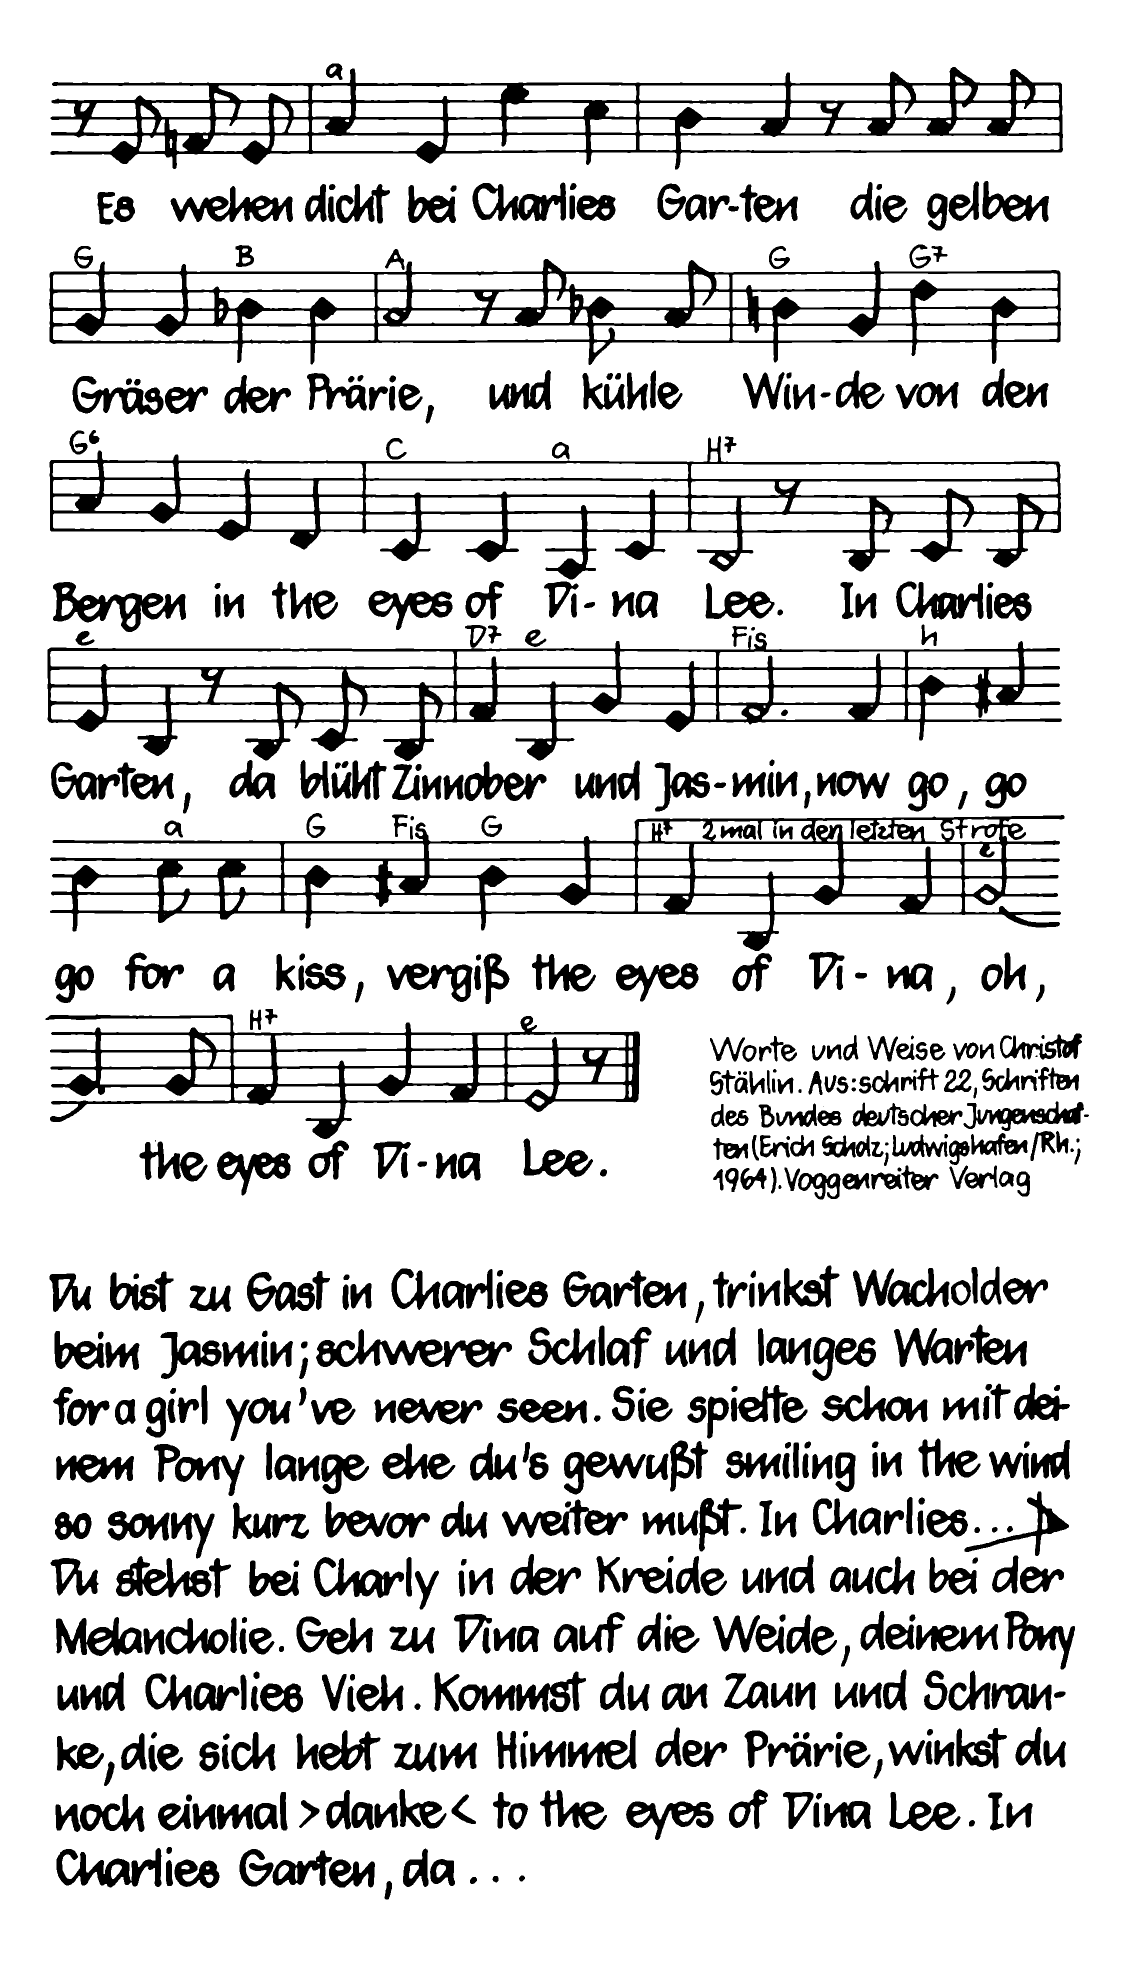 a
Es wehen dicht bei Charlies Gar-ten die gelben
G B A G G7
Gräser der Prärie, und kühle Win-de von den
G6 C a H7
Bergen in the eyes of Di- na Lee. In Charlies
e D7 e Fis h
Garten, da blüht Zinnober und Jas-min, now go, go
a G Fis G H7 2 mal in den letzten Strofe e
go for a kiss, vergiß the eyes of Di - na, oh,
H7 e
the eyes of Di-na Lee.
Worte und Weise von Christof
Stählin. Aus: schrift 22, Schriften
des Bundes deutscher Jungenschaf-
ten (Erich Scholz; Ludwigshafen/Rh.;
1964). Voggenreiter Verlag
Du bist zu Gast in Charlies Garten, trinkst Wacholder
beim Jasmin; schwerer Schlaf und langes Warten
for a girl you've never seen. Sie spielte schon mit dei-
nem Pony lange ehe du's gewußt smiling in the wind
so sonny kurz bevor du weiter mußt. In Charlies...
Du stehst bei Charly in der Kreide und auch bei der
Melancholie. Geh zu Dina auf die Weide, deinem Pony
und Charlies Vieh. Kommst du an Zaun und Schran-
ke, die sich hebt zum Himmel der Prärie, winkst du
noch einmal >danke< to the eyes of Dina Lee. In
Charlies Garten, da ...